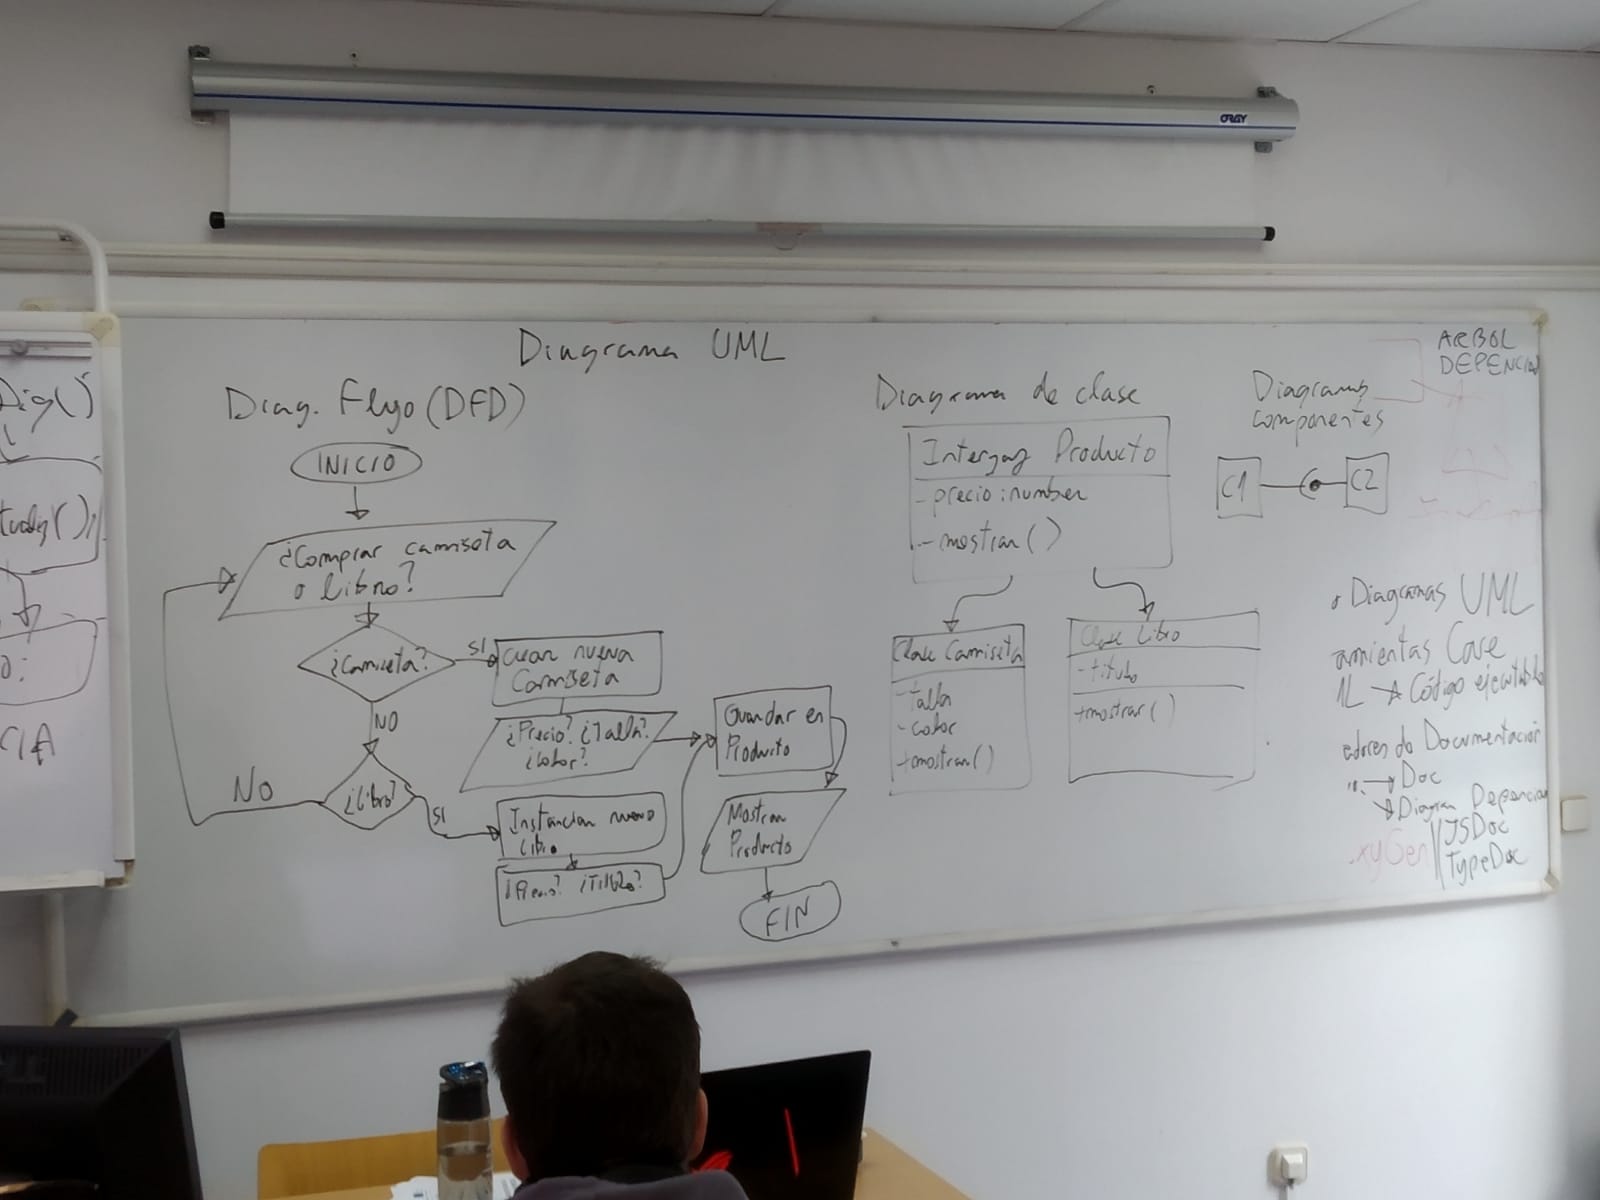 ORAY
Diagrama UML
Diag. Flujo (DFD)
INICIO
¿Comprar camiseta
o libro?
¿Camiseta?
SI
Crear nueva
Camiseta
NO
¿Precio? ¿Talla?
¿Color?
¿Libro?
No
SI
Instanciar nuevo
Libro
¿Precio? ¿Titulo?
Guardar en
Producto
Mostrar
Producto
FIN
Diagrama de clase
Interfaz Producto
- precio : number
- mostrar ( )
Clase Camiseta
- talla
- color
+ mostrar ( )
Clase Libro
- titulo
+ mostrar ( )
Diagramas
componentes
C1
C2
ARBOL
DEPENCIAS
Diagramas UML
amientas Case
Código ejecutable
adores do Documentación
Doc
Diagram Depencias
xyGen
JSDoc
TypeDoc
Dig()
tudy();
CIA